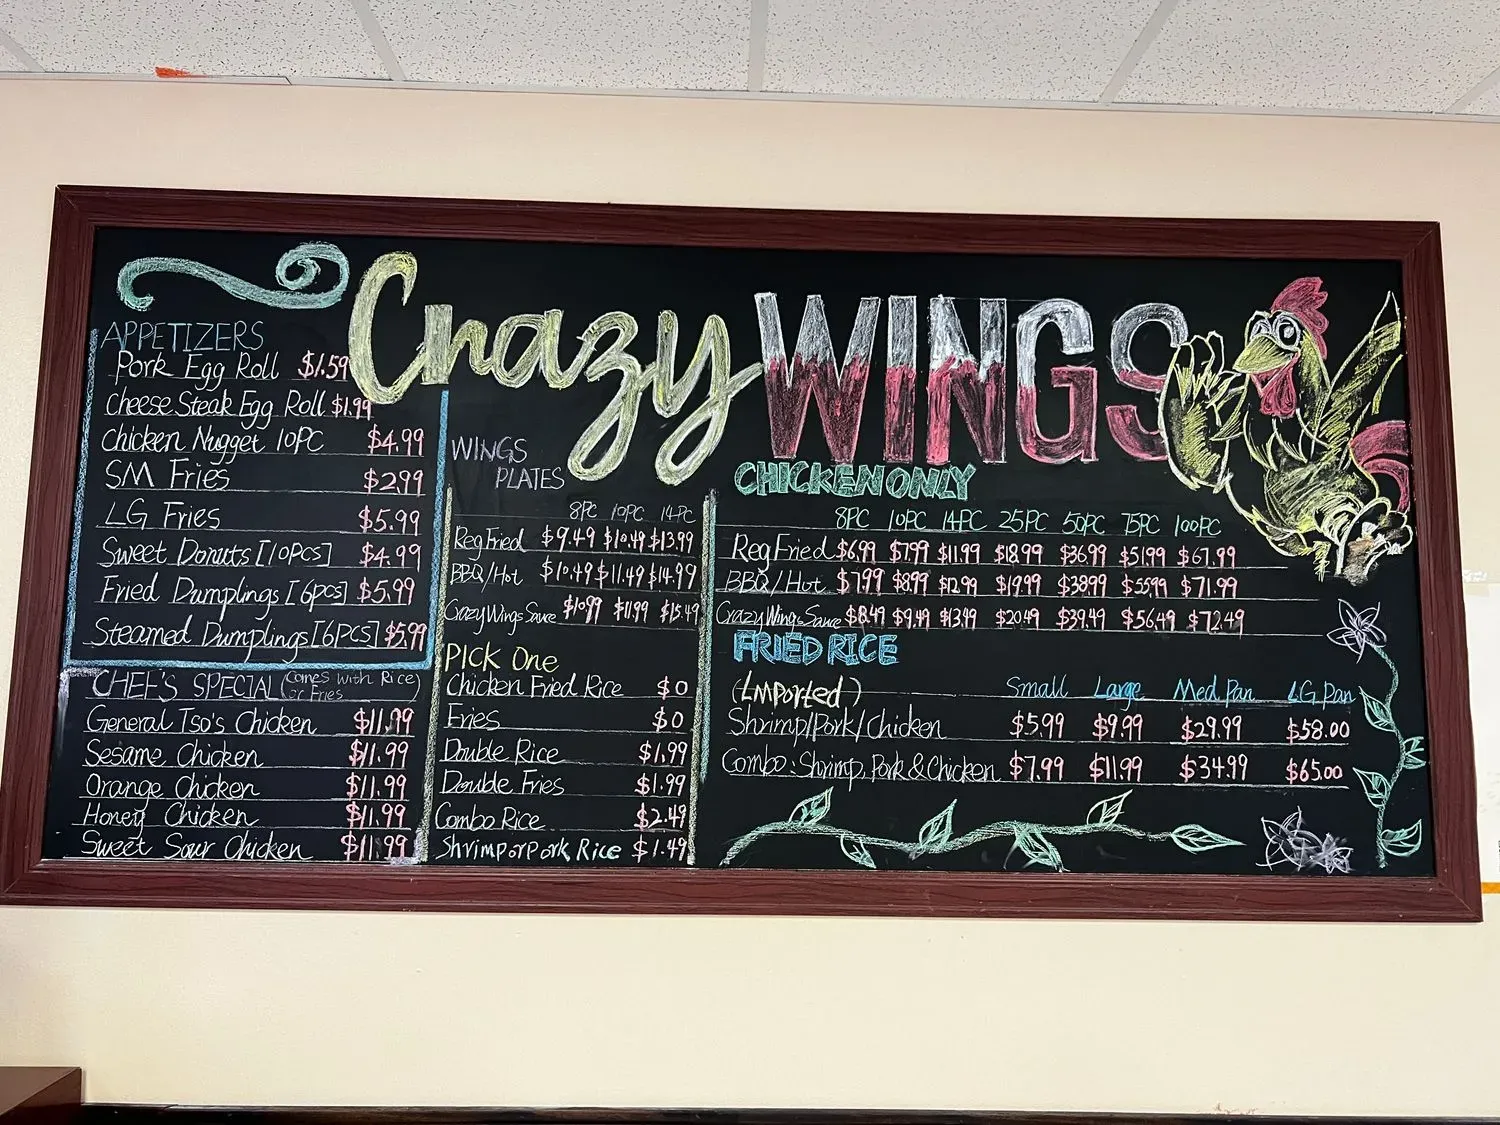 Crazy WINGS
APPETIZERS
Pork Egg Roll $1.59
Cheese Steak Egg Roll $1.99
Chicken Nugget 10PC $4.99
SM Fries $2.99
LG Fries $5.99
Sweet Donuts [10pcs] $4.99
Fried Dumplings [6pcs] $5.99
Steamed Dumplings [6PCS] $5.99
CHEF'S SPECIAL (Comes with Rice
or Fries)
General Tso's Chicken $11.99
Sesame Chicken $11.99
Orange Chicken $11.99
Honey Chicken $11.99
Sweet Sour Chicken $11.99
WINGS
PLATES
8PC 10PC 14PC
Reg Fried $9.49 $10.49 $13.99
BBQ/Hot $10.49 $11.49 $14.99
Crazy Wings Sauce $10.99 $11.99 $15.49
PICK One
Chicken Fried Rice $0
Fries $0
Double Rice $1.99
Double Fries $1.99
Combo Rice $2.49
Shrimp or Pork Rice $1.49
CHICKEN ONLY
8PC 10PC 14PC 25PC 50PC 75PC 100PC
Reg Fried $6.99 $7.99 $11.99 $18.99 $36.99 $51.99 $67.99
BBQ/Hot $7.99 $8.99 $12.99 $19.99 $38.99 $55.99 $71.99
Crazy Wings Sauce $8.49 $9.49 $13.99 $20.49 $39.49 $56.49 $72.49
FRIED RICE
(Imported) Small Large Med Pan LG Pan
Shrimp/Pork/Chicken $5.99 $9.99 $29.99 $58.00
Combo: Shrimp, Pork & Chicken $7.99 $11.99 $34.99 $65.00